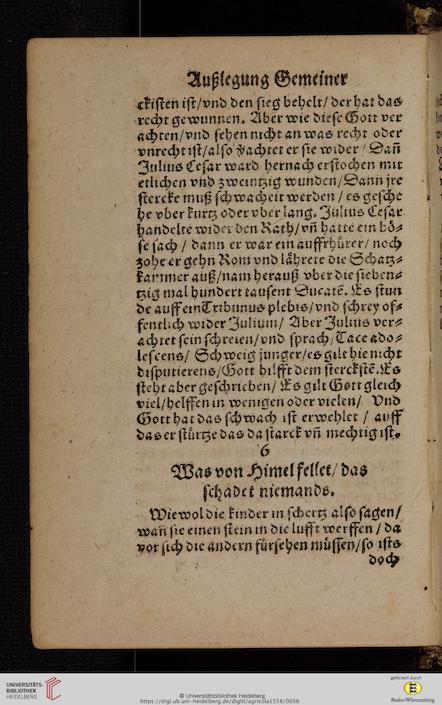 Außlegung Gemeiner
ckisten ist/vnd den sieg behelt/der hat das
recht gewunnen. Aber wie diese Gott ver
achten/vnd sehen nicht an was recht oder
vnrecht ist/also v̈achtet er sie wider/ Dañ
Julius Cesar ward hernach erstochen mit
etlichen vnd zweintzig wunden/Dann jre
stercke muß schwacheit werden/es gesche
he vber kurtz oder vber lang. Julius Cesar
handelte wider den Rath/vñ hatte ein bö⸗
se sach/ dann er war ein auffrhürer/noch
zohe er gehn Rom vnd lährete die Schatz⸗
kammer auß/nam herauß vber die sieben⸗
tzig mal hundert tausent Ducatē. Es stun
de auff ein Tribunus plebis/vnd schrey of⸗
fentlich wider Julium/ Aber Julius ver⸗
achtet sein schreien/vnd sprach/Tace ado⸗
lescens/ Schweig junger/es gilt hie nicht
disputierens/Gott hilfft dem sterckstē.Es
steht aber geschrieben/ Es gilt Gott gleich
viel/helffen in wenigen oder vielen/ Vnd
Gott hat das schwach ist erwehlet/ auff
das er stürtze das da starck vñ mechtig ist.
6
Was von Himel fellet/das
schadet niemands.
Wiewol die kinder in schertz also sagen/
wañ sie einen stein in die lufft werffen/ da
vor sich die andern fürsehen müssen/so ists
doch
UNIVERSITÄTS-
BIBLIOTHEK
HEIDELBERG
© Universitätsbibliothek Heidelberg
https://digi.ub.uni-heidelberg.de/diglit/agricola1558/0056
gefördert durch
Baden-Württemberg